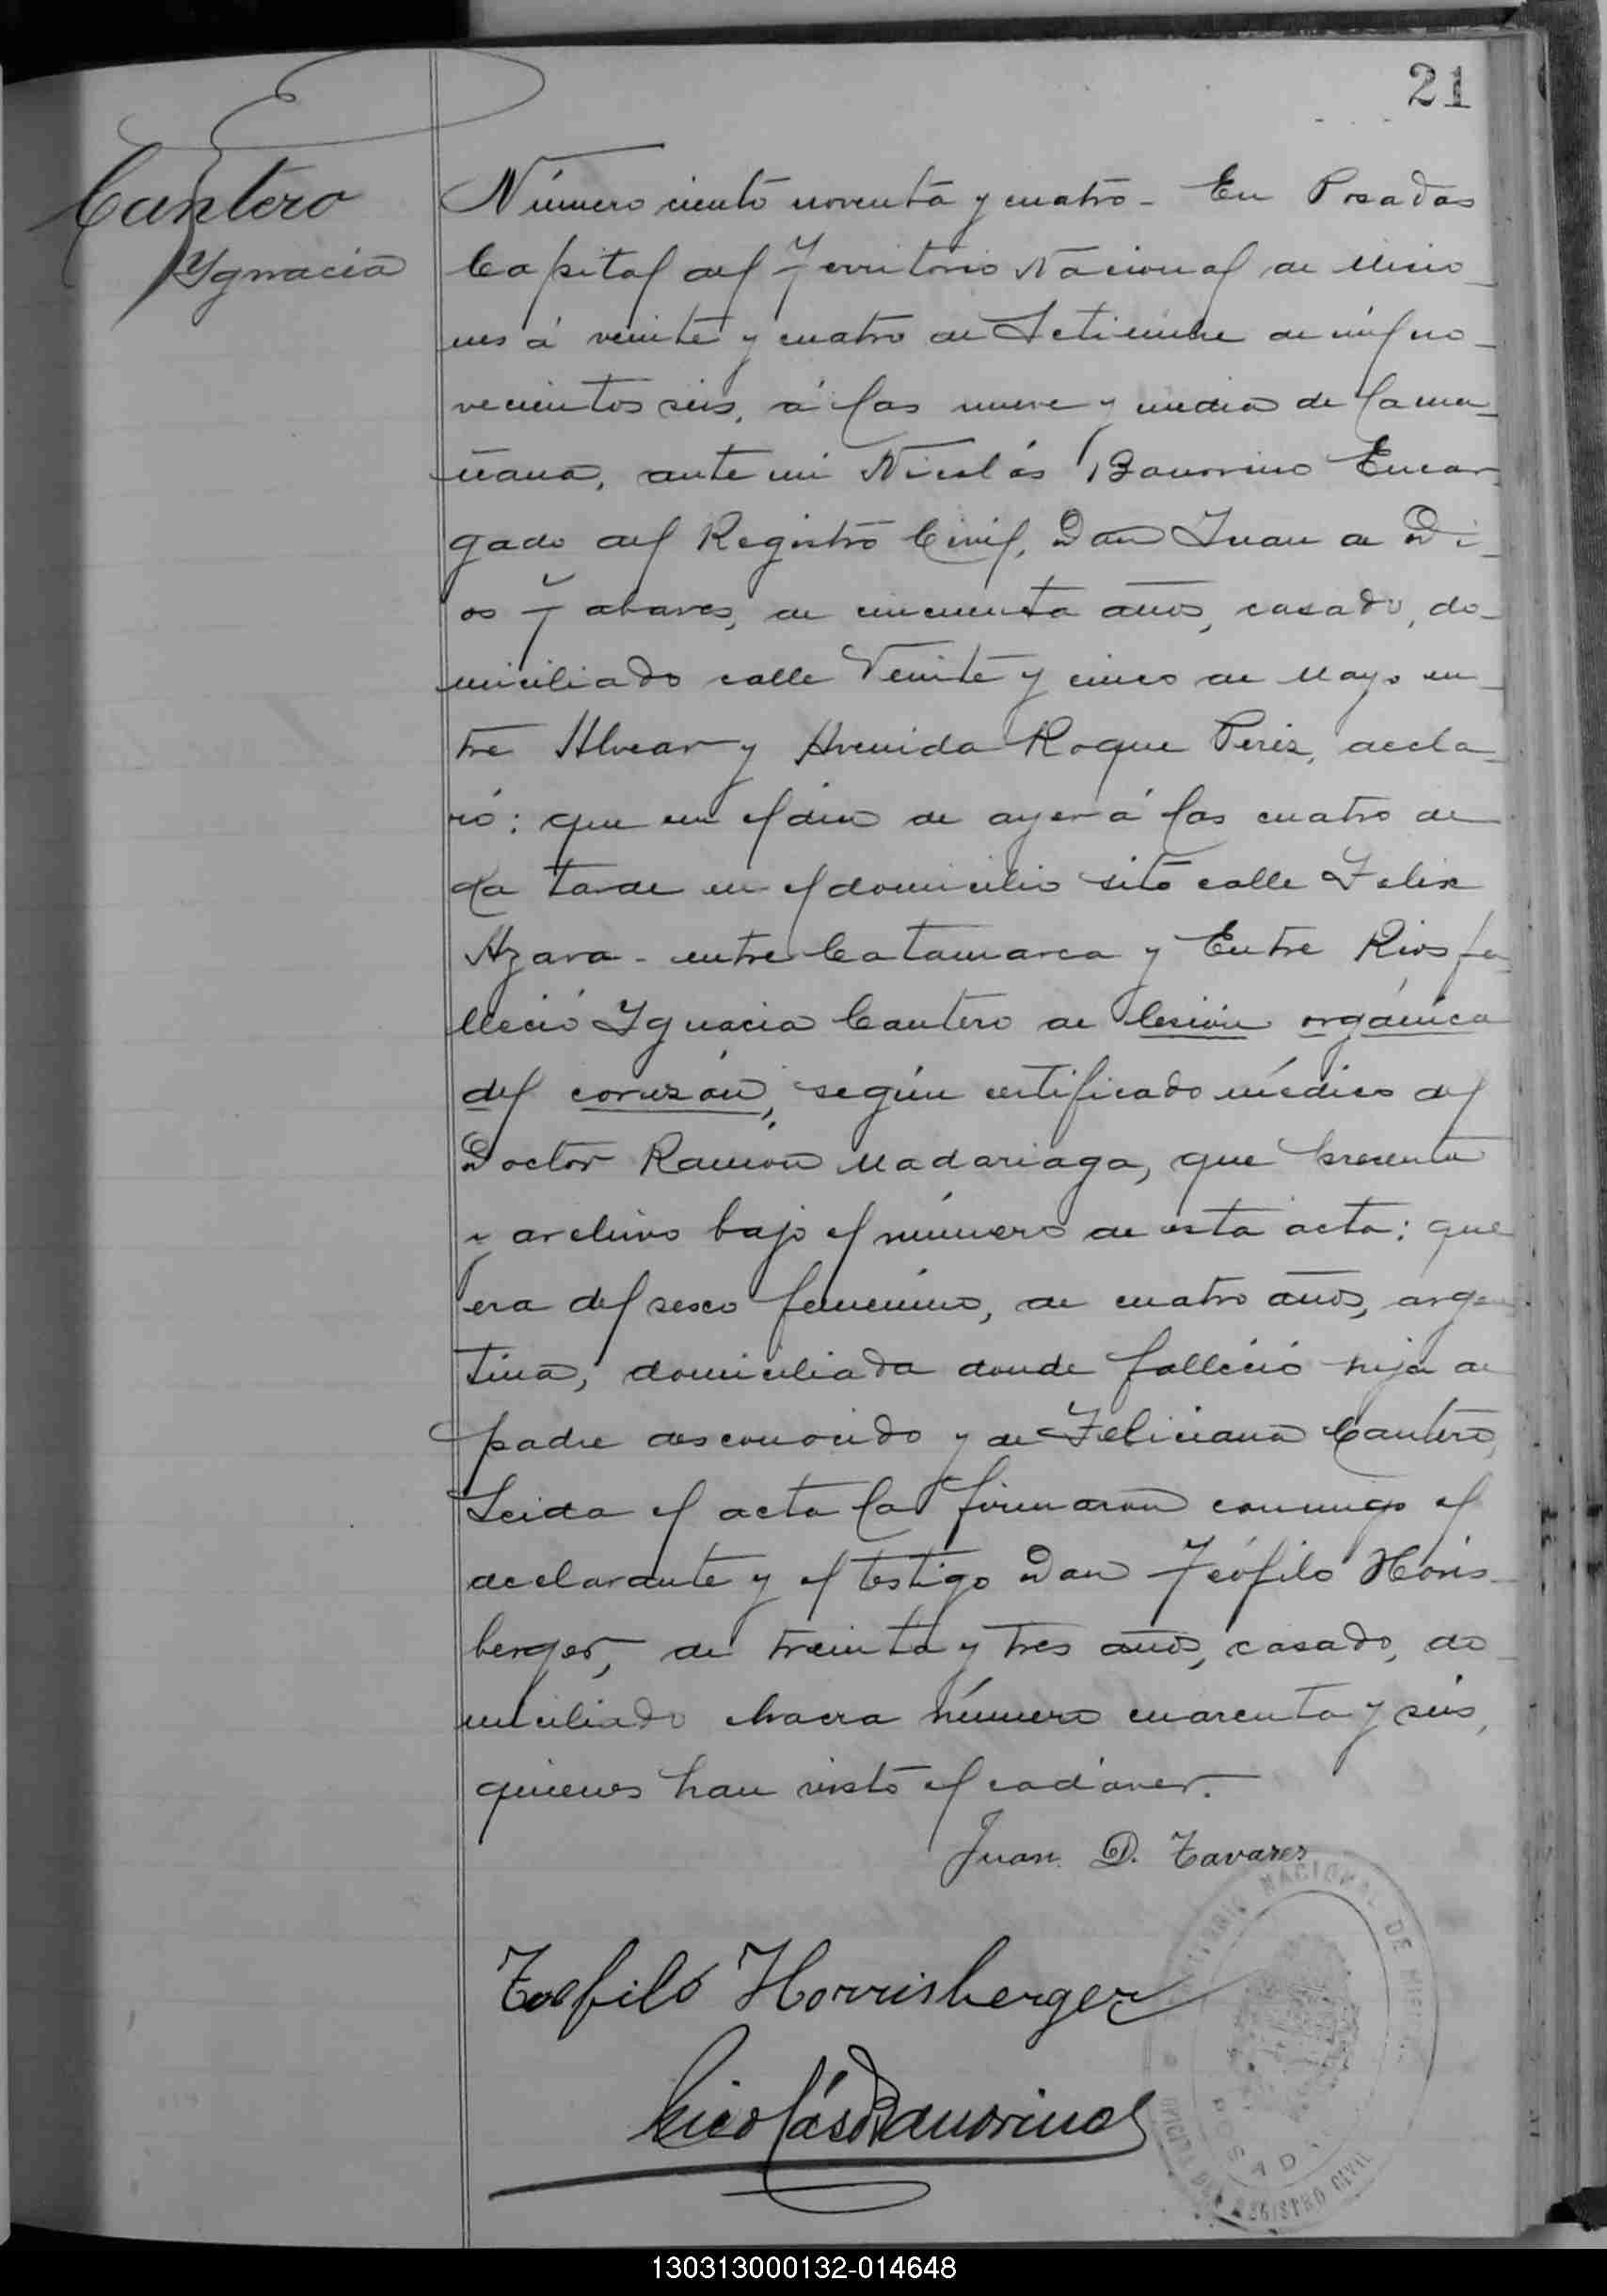 21
Cantero
Ygnacia
Número ciento noventa y cuatro - En Posadas
Capital del Territorio Nacional de Misio-
nes á veinte y cuatro de Setiembre de mil no-
vecientos seis, á las nueve y media de la ma-
ñana, ante mi Nicolás Bauorino Encar-
gado del Registro Civil, Don Juan de Di-
os Tabares, de cincuenta años, casado, do-
miciliado calle Veinte y cinco de Mayo en-
tre Alvear y Avenida Roque Perez, decla-
ró: que en el dia de ayer á las cuatro de
la tarde en el domicilio sito calle Felix
Azara - entre Catamarca y Entre Rios fa-
lleció Ygnacia Cantero de lesión orgánica
del corazón, según certificado médico del
Doctor Ramón Madariaga, que presenta
y archivo bajo el número de esta acta: que
era del sexo femenino, de cuatro años, argen-
tina, domiciliada donde falleció hija de
padre desconocido y de Feliciana Cantero,
Leida el acta la firmaron conmigo el
declarante y el testigo Don Teófilo Horis-
berger, de treinta y tres años, casado, do-
miciliado chacra número cuarenta y seis,
quienes han visto el cadáver.
Juan D. Tavares
Teofilo Horrisberger
Nicolás Bauorino
TERRITORIO NACIONAL DE MISIONES
POSADAS
OFICINA DEL REGISTRO CIVIL
130313000132-014648